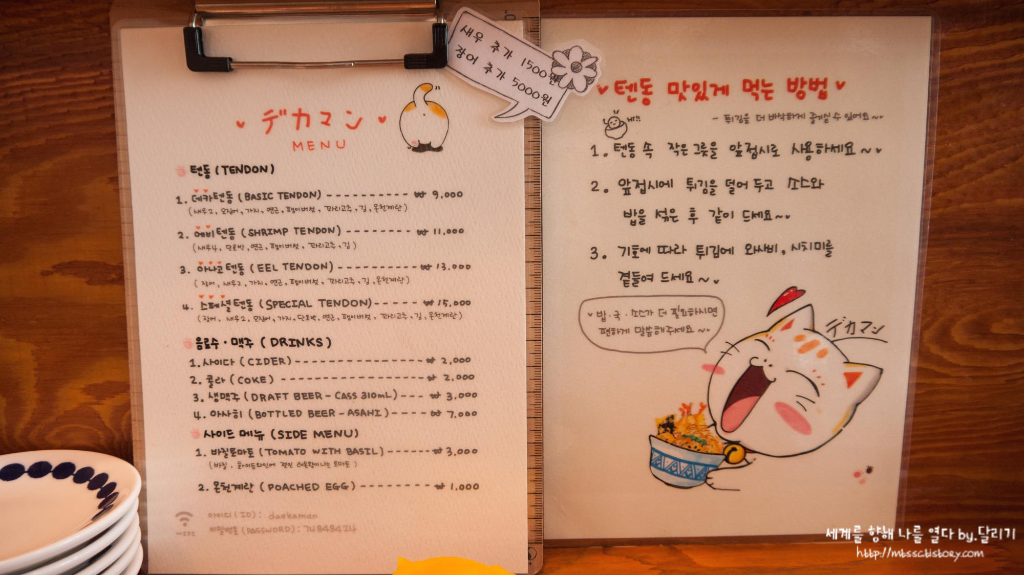 새우 추가 1500원
장어 추가 5000원
デカマン
MENU
텐동 (TENDON)
1. 데카텐동 (BASIC TENDON) ---------- ₩ 9,000
(새우2, 오징어, 가지, 연근, 팽이버섯, 꽈리고추, 김, 온천계란)
2. 에비텐동 (SHRIMP TENDON) ---------- ₩ 11,000
(새우4, 단호박, 연근, 팽이버섯, 꽈리고추, 김)
3. 아나고텐동 (EEL TENDON) ---------- ₩ 13,000
(장어, 새우2, 가지, 연근, 팽이버섯, 꽈리고추, 김, 온천계란)
4. 스페셜텐동 (SPECIAL TENDON) ---------- ₩ 15,000
(장어, 새우2, 오징어, 가지, 단호박, 연근, 팽이버섯, 꽈리고추, 김, 온천계란)
음료수·맥주 (DRINKS)
1. 사이다 (CIDER) ---------- ₩ 2,000
2. 콜라 (COKE) ---------- ₩ 2,000
3. 생맥주 (DRAFT BEER - CASS 310ML) ---- ₩ 3,000
4. 아사히 (BOTTLED BEER - ASAHI) ---- ₩ 7,000
사이드 메뉴 (SIDE MENU)
1. 바질토마토 (TOMATO WITH BASIL) ------ ₩ 3,000
2. 온천계란 (POACHED EGG) ---------- ₩ 1,000
아이디 (ID): daekaman
비밀번호 (PASSWORD):
텐동 맛있게 먹는 방법
- 튀김을 더 바삭하게 즐기실 수 있어요~
1. 텐동 속 작은 그릇을 앞접시로 사용하세요~
2. 앞접시에 튀김을 덜어 두고 소스와
밥을 섞은 후 같이 드세요~
3. 기호에 따라 튀김에 와사비, 시치미를
곁들여 드세요~
밥·국·소스가 더 필요하시면
편하게 말씀해주세요~
デカマン
세계를 향해 나를 열다 by.달리기
http://mbsscb.tistory.com